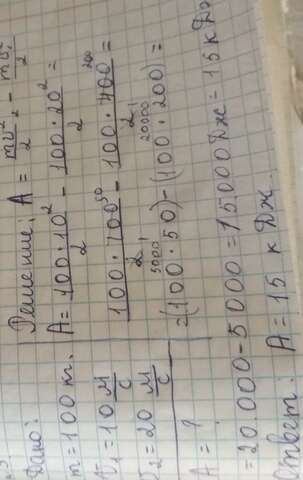 Дано:
m = 100 т.
V₁ = 10 м/с
V₂ = 20 м/с
A = ?
Решение: A = mv²₂/2 - mv²₁/2
A = 100·10²/2 - 100·20²/2 =
100·100⁵⁰/2₁ - 100·400²⁰⁰/2₁ =
= (100·50) - (100·200) =
5000 20000
= 20.000 - 5000 = 15000 Дж = 15 кДж
Ответ: A = 15 кДж.